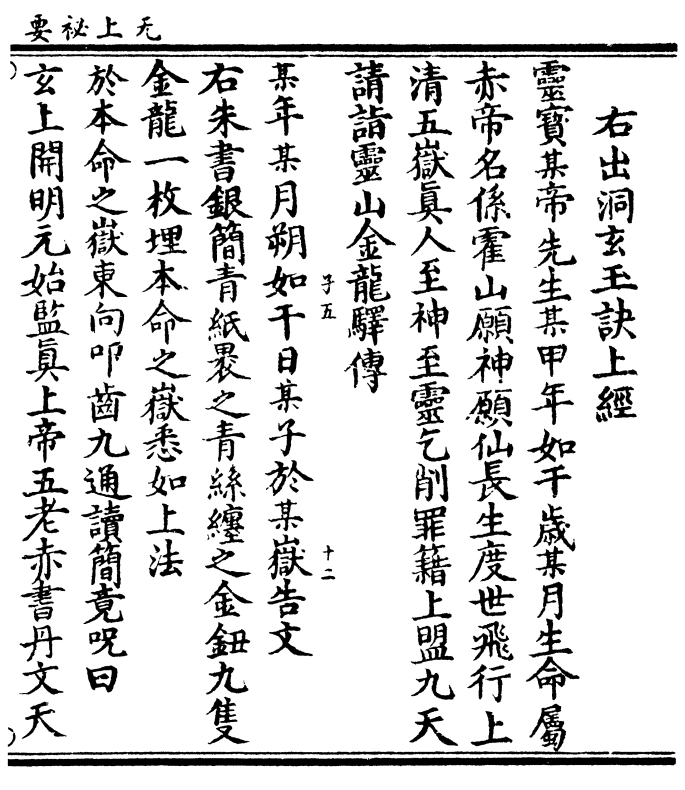 无上祕要
右出洞玄玉訣上經
靈寳某帝先生某甲年如干歳某月生命屬
赤帝名係霍山願神願仙長生度世飛行上
清五嶽眞人至神至靈乞削罪籍上盟九天
請詣靈山金龍驛傳
子五 十二
某年某月朔如干日某子於某嶽告文
右朱書銀簡青紙褁之青絲纏之金鈕九隻
金龍一枚埋本命之嶽悉如上法
於本命之嶽東向叩齒九通讀簡竟呪曰
玄上開明元始監眞上帝五老赤書丹文天